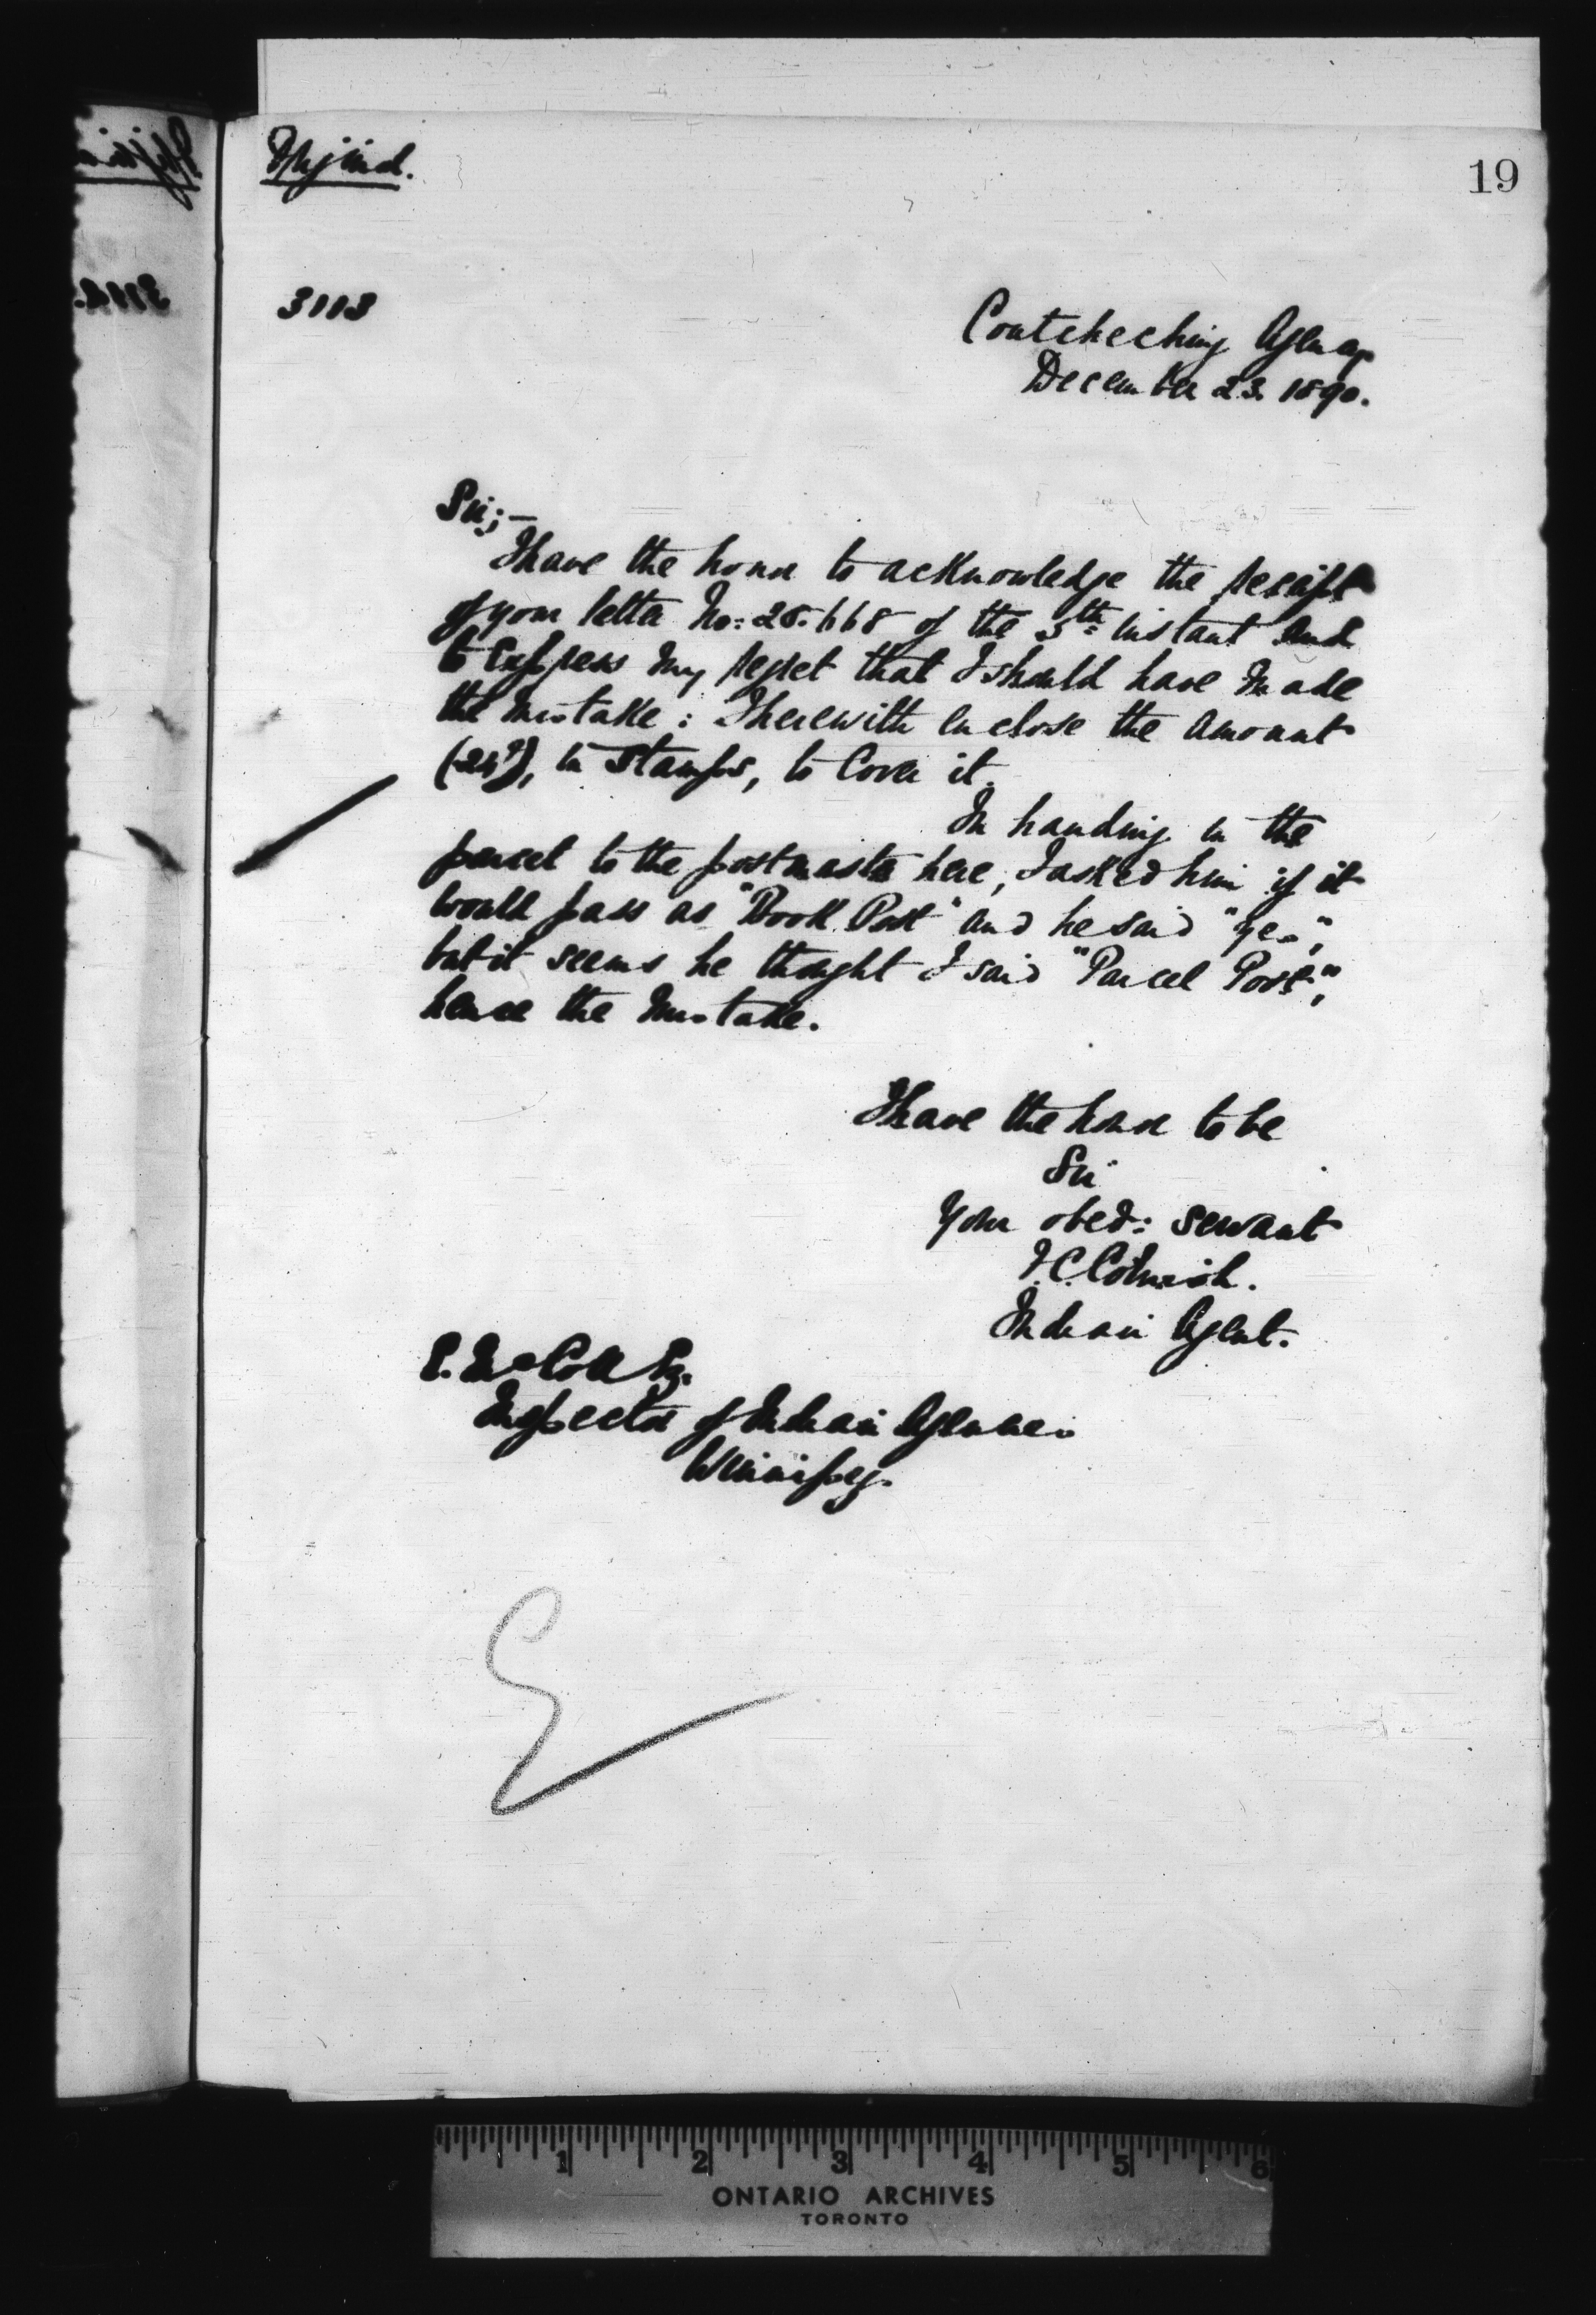 19
3113
Coutcheching Agency
December 23. 1890.
Sir;—
I have the honor to acknowledge the receipt
of your letter No: 25.668 of the 5th instant and
to express my regret that I should have made
the mistake: I herewith enclose the amount
in stamps, to cover it.
In handing in the
parcel to the postmaster here, I asked him if it
would pass as "Book Post" and he said "yes",
but it seems he thought I said "Parcel Post",
hence the mistake.
I have the honor to be
Sir
Your obed: servant
J.C. Cornish.
Indian Agent.
E. McColl Esq.
Inspector of Indian Agencies
Winnipeg.
1 2 3 4 5 6
ONTARIO ARCHIVES
TORONTO